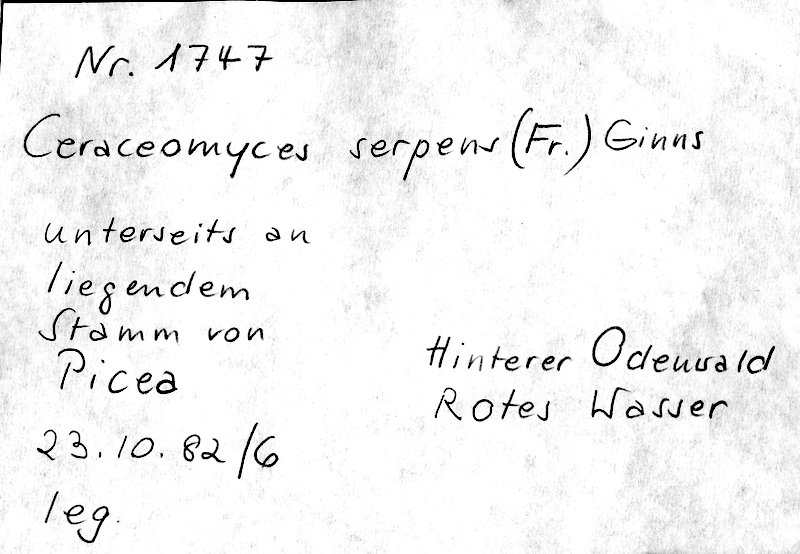 Nr. 1747
Ceraceomyces serpens (Fr.) Ginns
unterseits an
liegendem
Stamm von
Picea
Hinterer Odenwald
Rotes Wasser
23.10.82/6
leg.